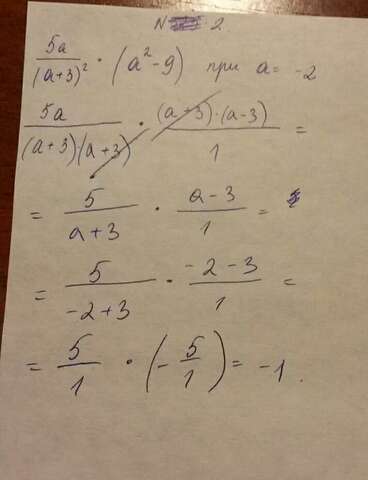 N 2.
5a/(a+3)² · (a²-9) при a= -2
5a/((a+3)·(a+3)) · ((a+3)·(a-3))/1 =
= 5/(a+3) · (a-3)/1 =
= 5/(-2+3) · (-2-3)/1 =
= 5/1 · (-5/1) = -1.